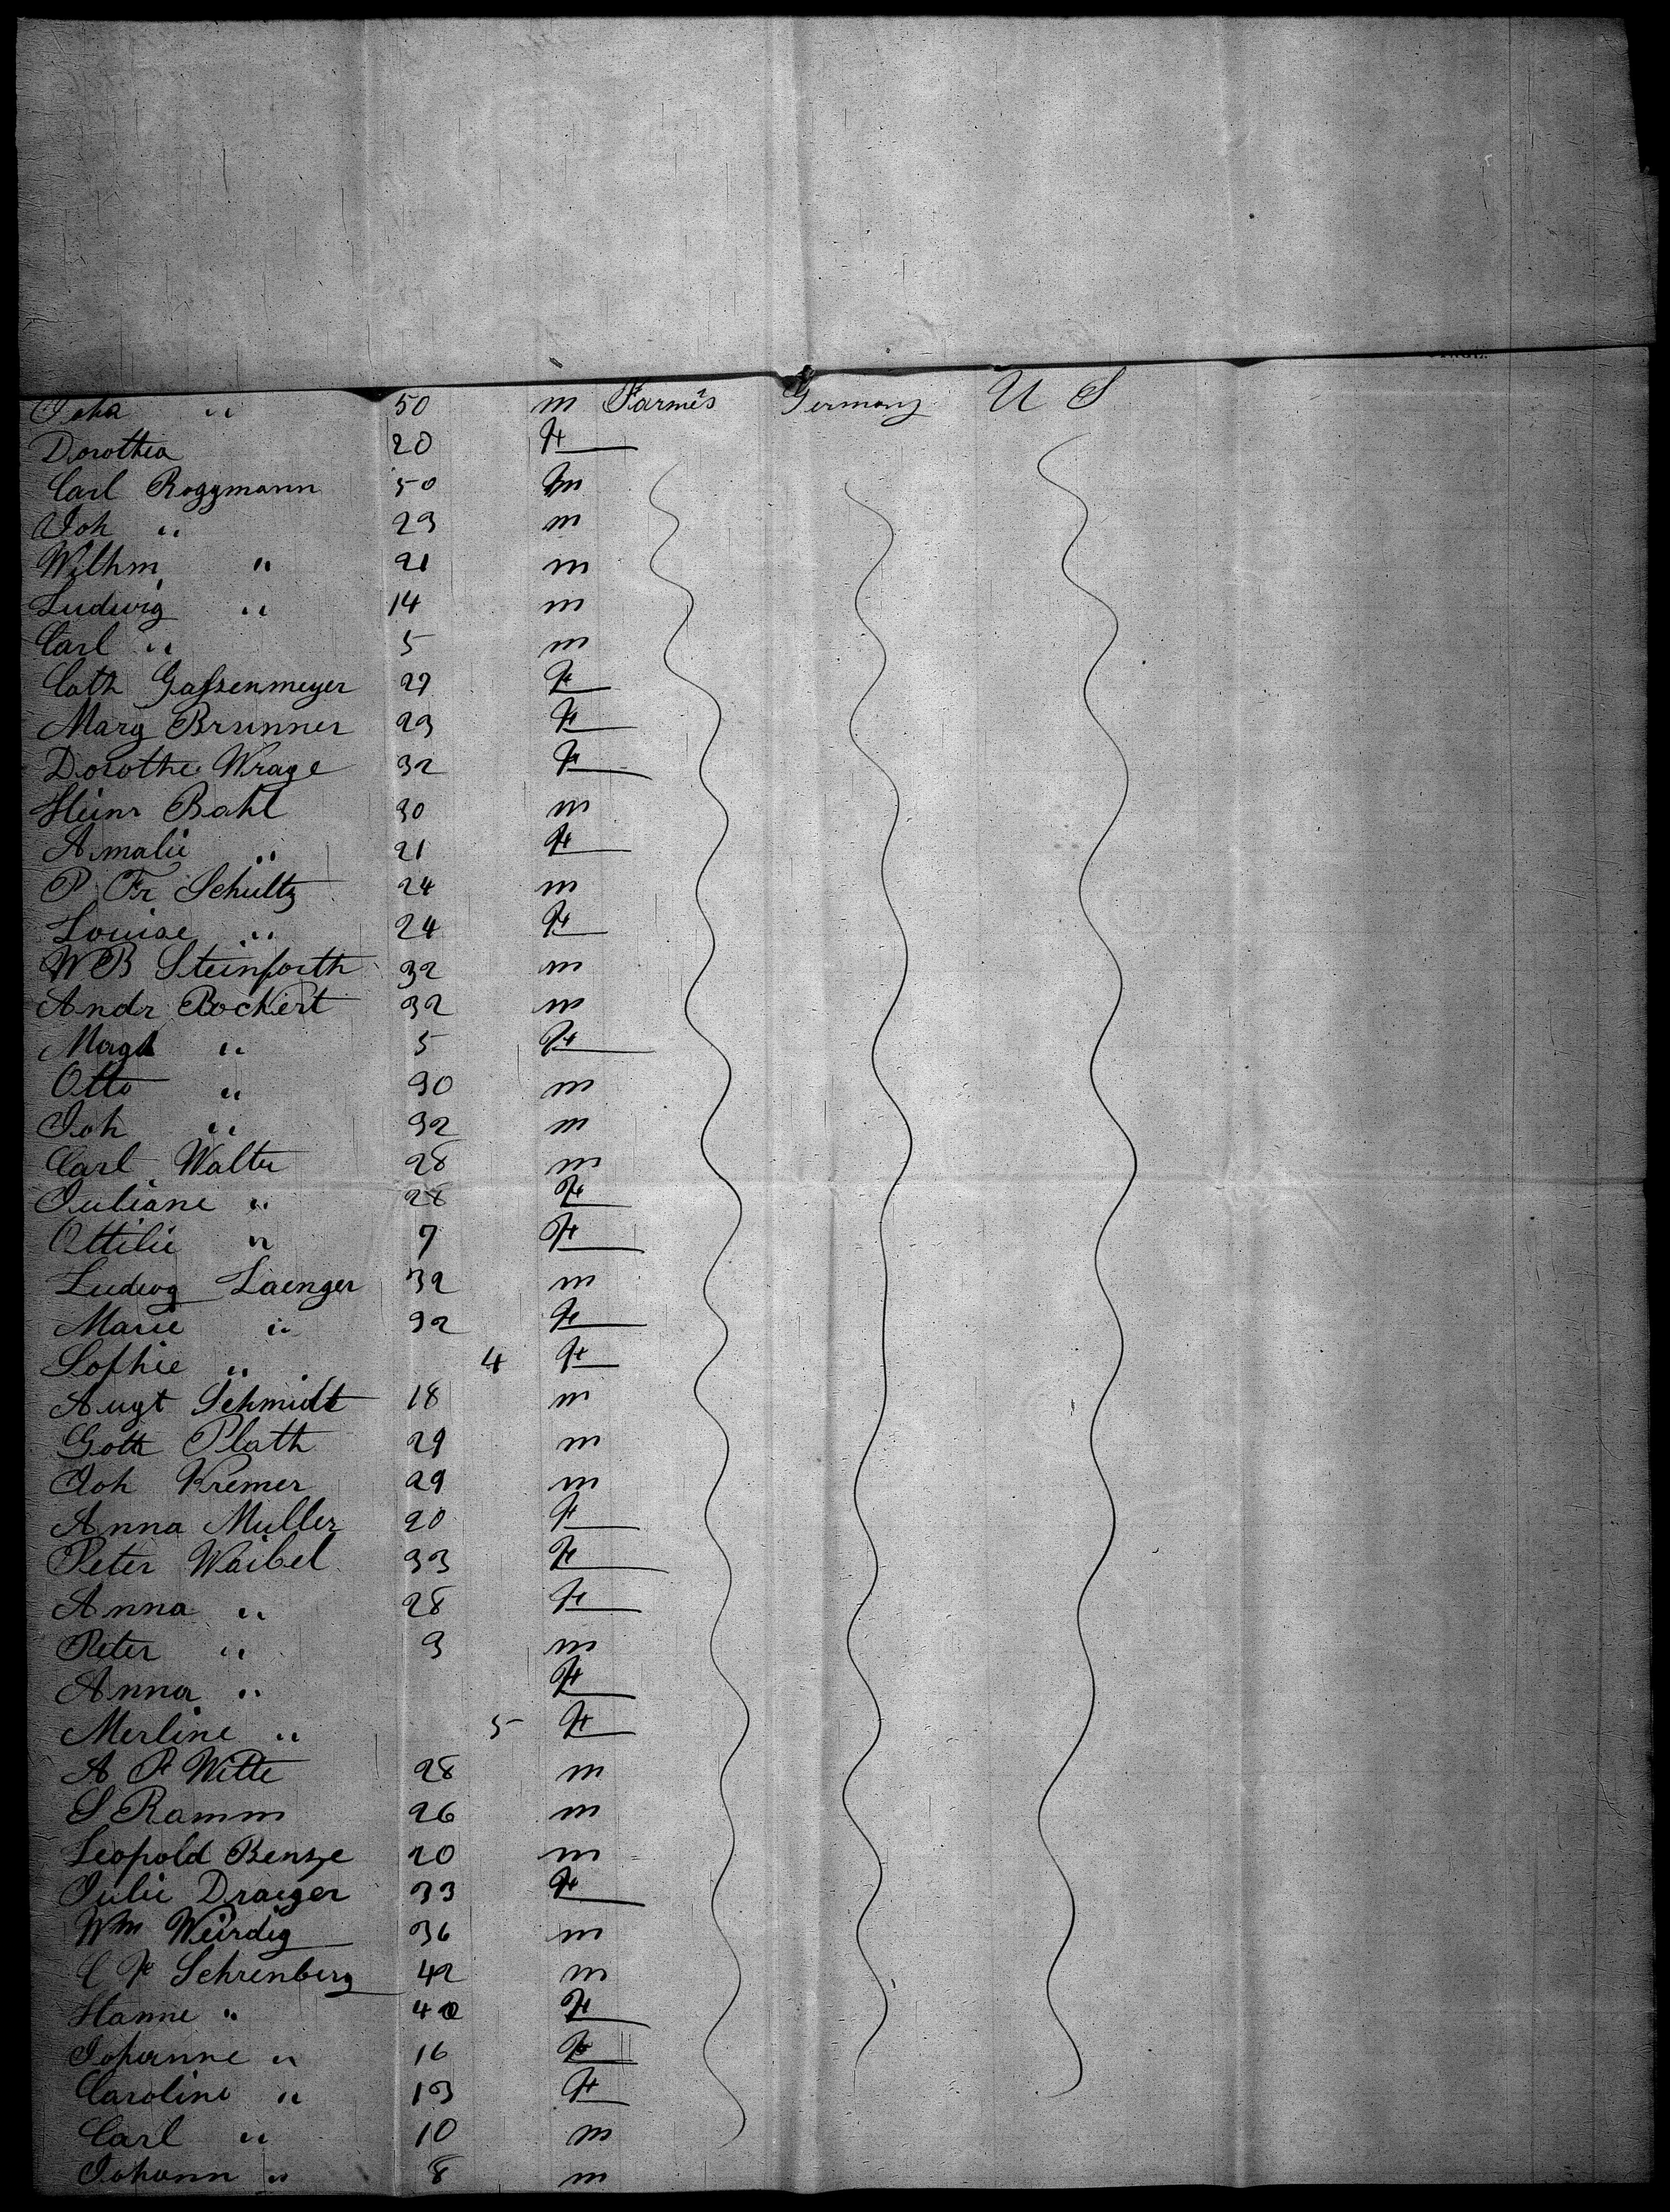 Joha " 50 m Farmers Germany U S
Dorothea 20 F
Carl Roggmann 50 m
Joh " 23 m
Wilhm " 21 m
Ludwig " 14 m
Carl " 5 m
Cath Gassenmeyer 27 F
Marg Brunner 23 F
Dorothe Wrage 32 F
Heinr Bahl 30 m
Amalie " 21 F
P Fr Schultz 24 m
Louise " 24 F
W B Steinforth 32 m
Andr Bockert 32 m
Magd " 5 F
Otto " 30 m
Joh " 32 m
Carl Walter 28 m
Juliane " 28 F
Ottilie " 7 F
Ludwg Laenger 32 m
Marie " 32 F
Sophie " 4 F
Augt Schmidt 18 m
Gott Plath 29 m
Joh Kremer 29 m
Anna Muller 20 F
Peter Waibel 33 F
Anna " 28 F
Peter " 3 m
Anna " F
Merline " 5 F
A P Witte 28 m
S Ramm 26 m
Leopold Benze 20 m
Julie Draeger 33 F
Wm Weirdig 36 m
C F Sehrenberg 42 m
Hanne " 40 F
Johanne " 16 F
Caroline " 13 F
Carl " 10 m
Johann " 8 m